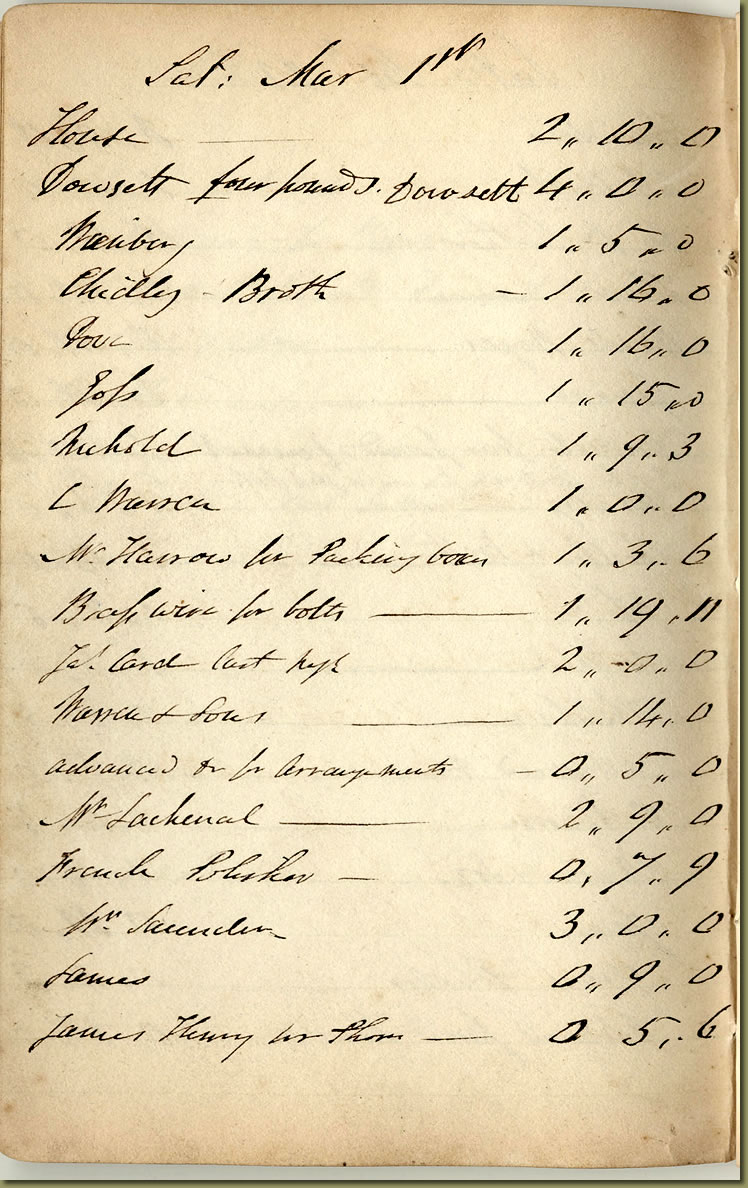 Sat: Mar 1st
House — 2 ,, 10 ,, 0
Dowsett four pounds. Dowsett 4 ,, 0 ,, 0
1 ,, 5 ,, 0
Chidley - Broth — 1 ,, 16 ,, 0
Dove 1 ,, 16 ,, 0
Goſs 1 ,, 15 ,, 0
Nickold 1 ,, 9 ,, 3
C Warren 1 ,, 0 ,, 0
Mr. Harrow for Packing boxes 1 ,, 3 ,, 6
Braſs wire for bolts — 1 ,, 19 ,, 11
Jas. Card Cast 2 ,, 0 ,, 0
Warren & Sons — 1 ,, 14 ,, 0
advanced for Arrangements — 0 ,, 5 ,, 0
Mr Lachenal — 2 ,, 9 ,, 0
French Polisher — 0 ,, 7 ,, 9
Saunders 3 ,, 0 ,, 0
James 0 ,, 9 ,, 0
James Henry for — 0 5 ,, 6